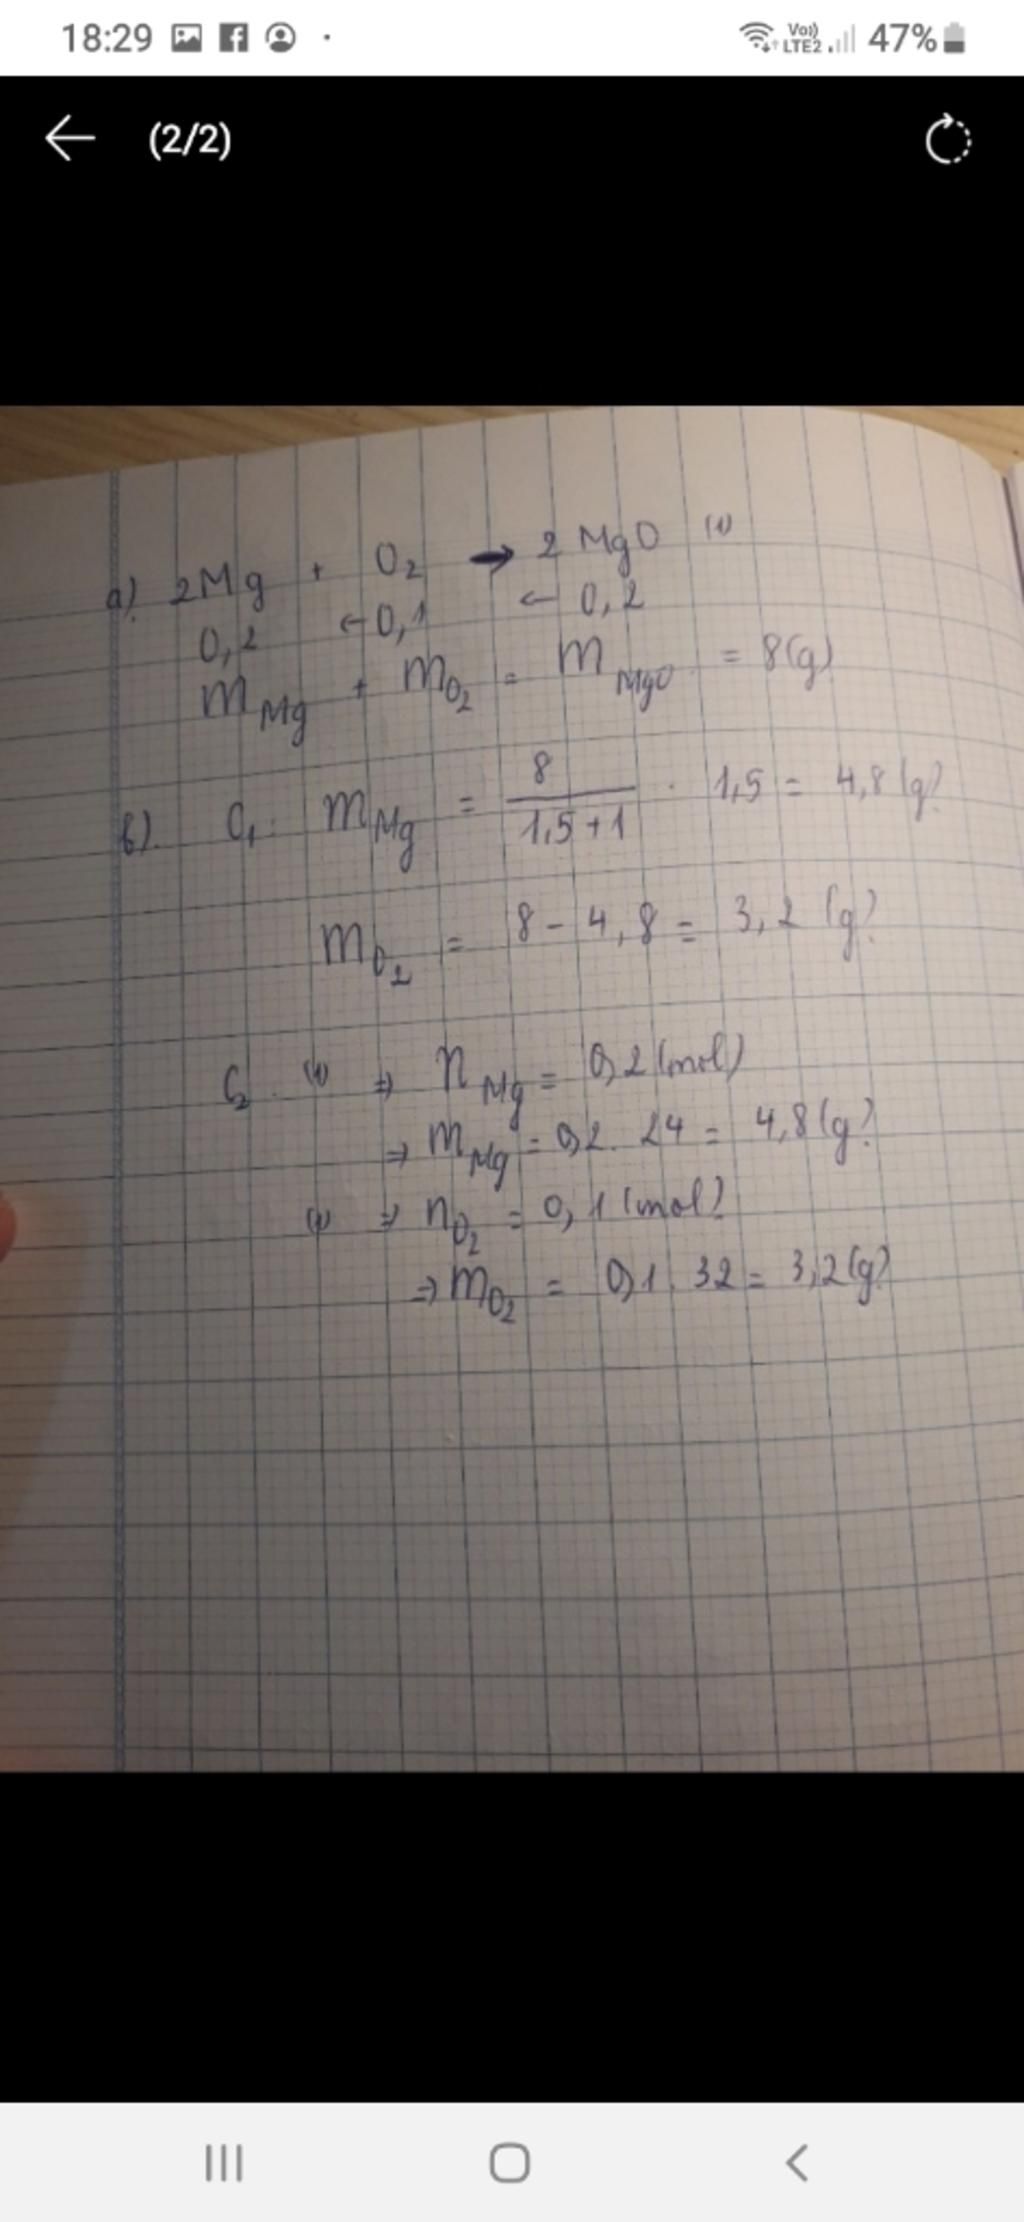 18:29
Vo))
LTE2
47%
(2/2)
a) 2Mg + O₂ → 2 MgO (1)
0,2 ← 0,1 ← 0,2
m Mg + m O₂ = m MgO = 8(g)
b). C₁: m Mg = 8 / 1,5+1 . 1,5 = 4,8 (g)
m O₂ = 8 - 4,8 = 3,2 (g)
C₂ (1) ⇒ n Mg = 0,2 (mol)
⇒ m Mg = 0,2 . 24 = 4,8 (g)
(1) ⇒ n O₂ = 0,1 (mol)
⇒ m O₂ = 0,1 . 32 = 3,2 (g)